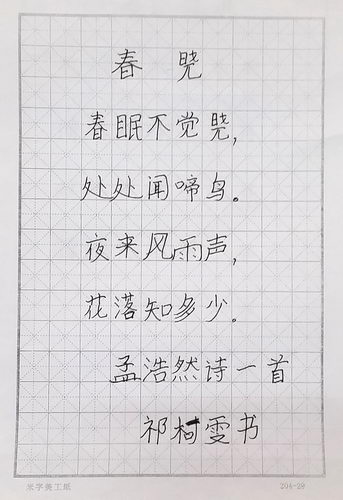 春晓
春眠不觉晓，
处处闻啼鸟。
夜来风雨声，
花落知多少。
孟浩然诗一首
祁柯雯书
米字美工纸 204-29